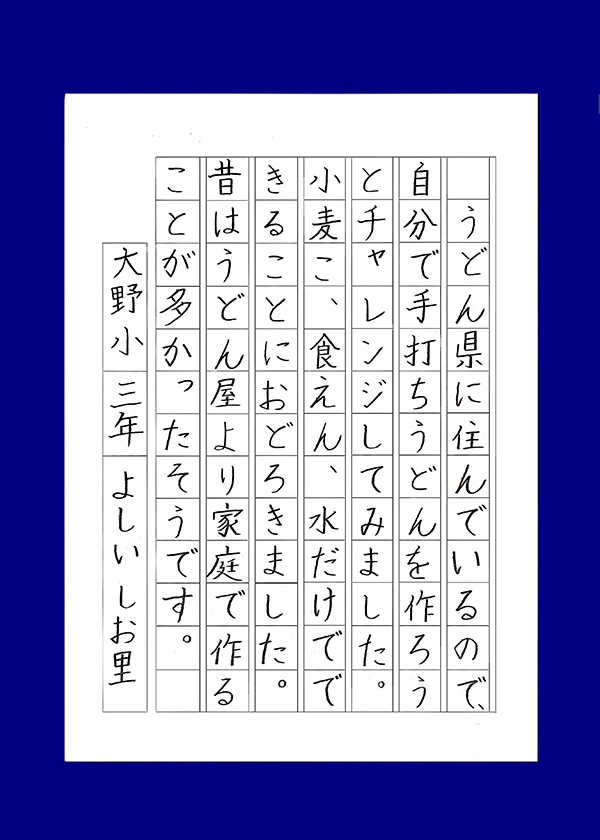 うどん県に住んでいるので、
自分で手打ちうどんを作ろう
とチャレンジしてみました。
小麦こ、食えん、水だけでで
きることにおどろきました。
昔はうどん屋より家庭で作る
ことが多かったそうです。
大野小 三年 よしい しお里